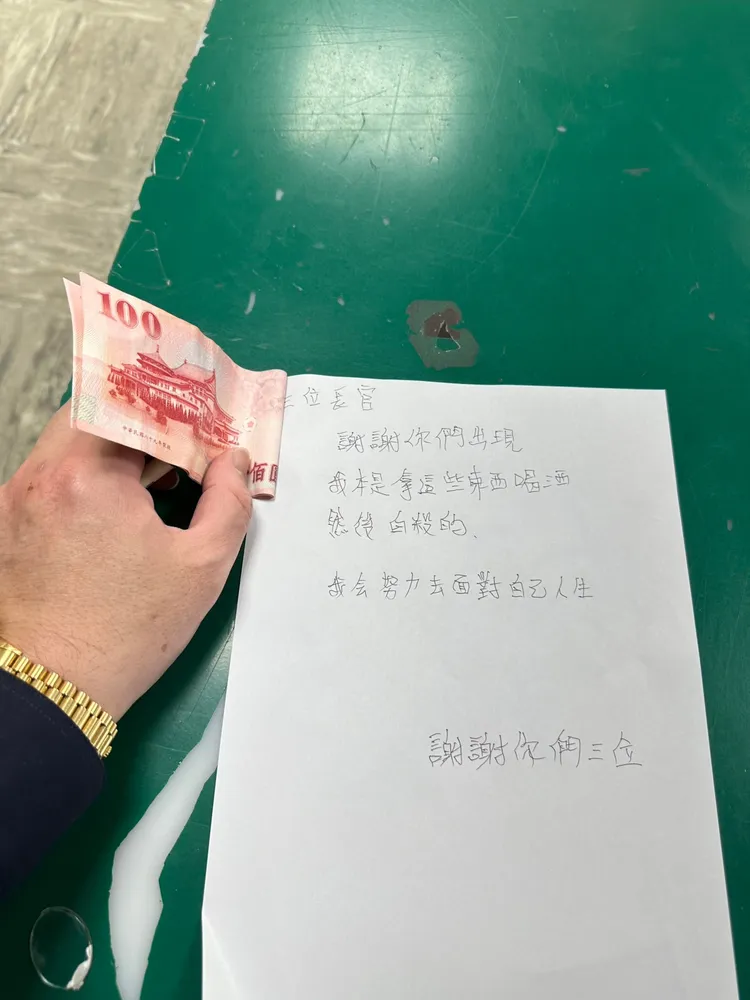 100
中華民國八十九年製版
佰圓
三位長官
謝謝你們出現
我本是拿這些東西喝酒
然後自殺的、
我会努力去面對自己人生
謝謝你們三位